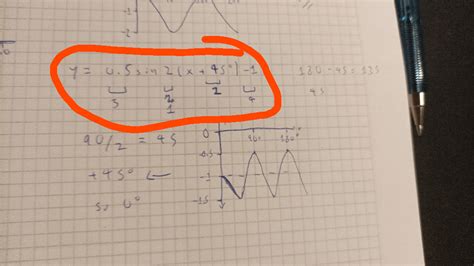 -1
-2
y = 0.5 sin 2 (x + 45°) -1
180 - 45 = 135
3 2 2 4
1
45
90/2 = 45
+45° ←
0
-0.5
-1
-1.5